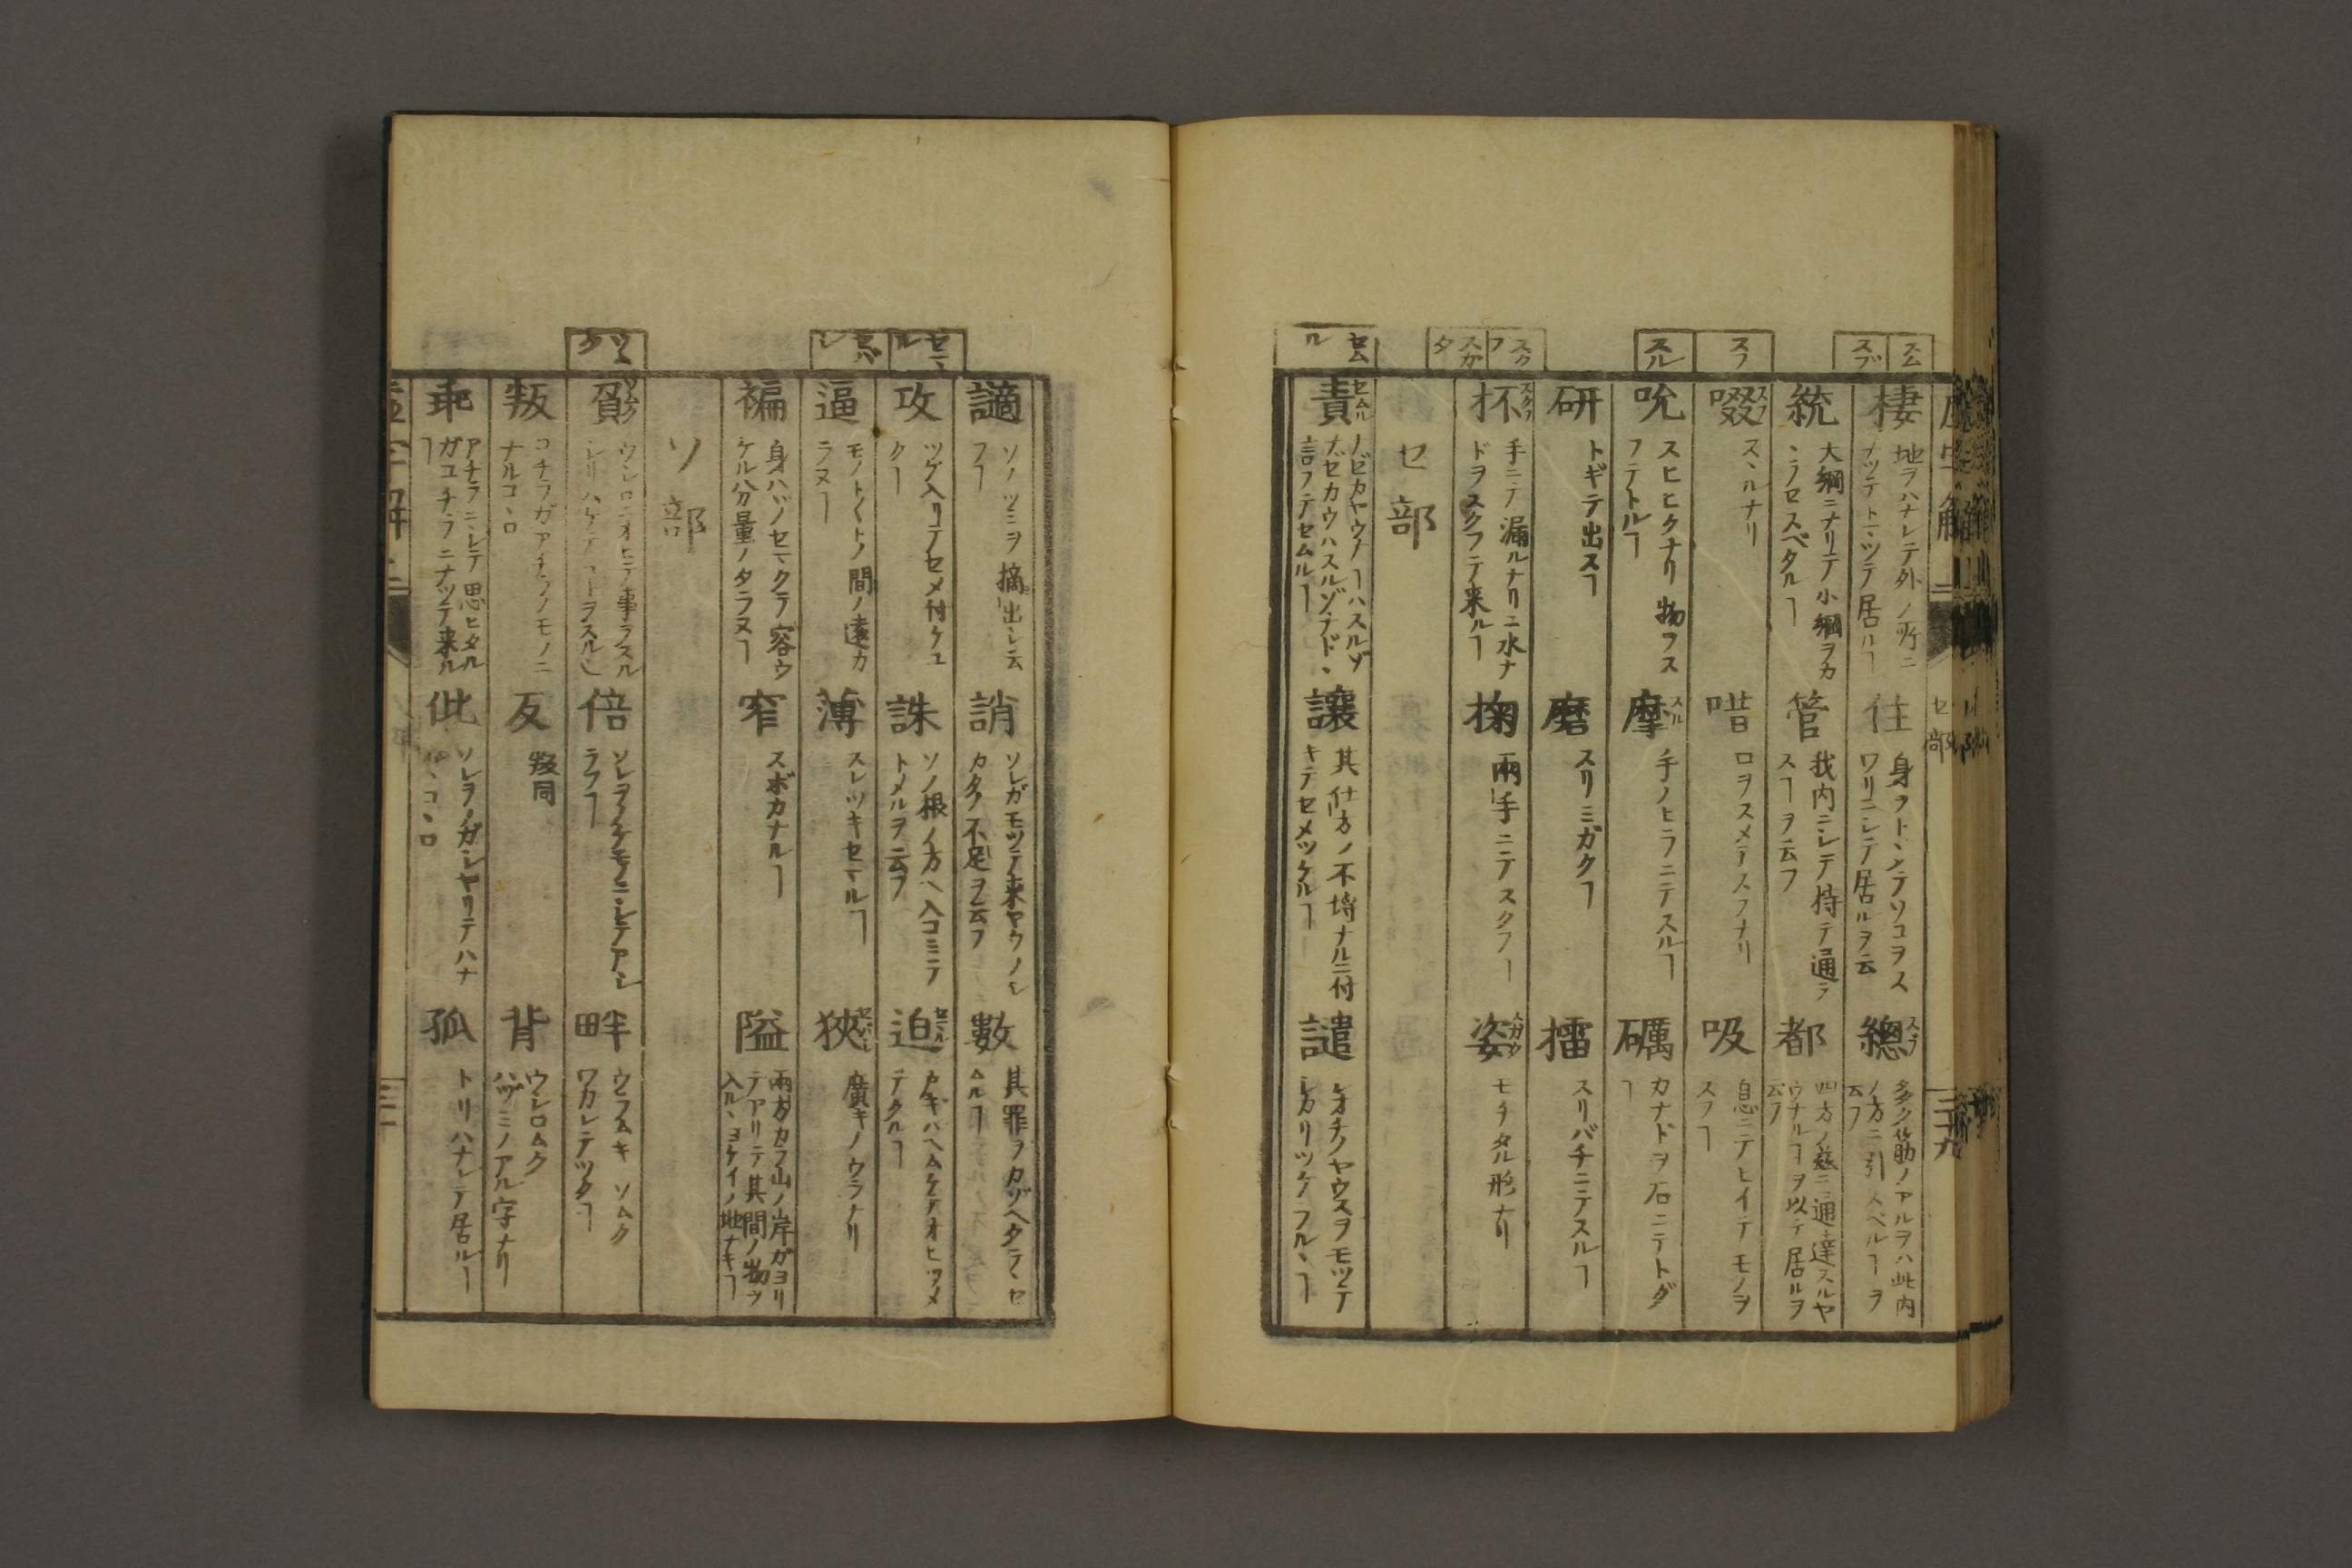 スム
棲
地ヲハナレテ外ノ所ニ
ナツテトヾツテ居ルヿ
住
身ヲトヾメテソコヲス
ワリニシテ居ルヲ云
スブ
總
スブ
多ク筋ノアルヲハ此内
ノ方ニ引スベルヿヲ
云フ
統
大綱ニナリテ小綱ヲカ
ヽラセスベタルヿ
管
我内ニシテ持テ通ラ
スヿヲ云フ
都
四方ノ
ニ通達スルヤ
ウナルヿヲ以テ居ルヲ
云フ
スフ
啜
スフ
スヽルナリ
唶
口ヲスメテスフナリ
吸
息ニテヒイテモノヲ
スフヿ
スル
吮
スヒヒクナリ物ヲス
フテトルヿ
摩
スル
手ノヒラニテスルヿ
礪
カナドヲ石ニテトグ
ヿ
研
トギテ出スヿ
磨
スリミガクヿ
擂
スリバチニテスルヿ
スク
フ
抔
スクフ
手ニテ漏ルナリニ水ナ
ドヲスクフテ来ルヿ
掬
兩手ニテスクフヿ
スガ
タ
姿
スガタ
モチタル形ナリ
セ部
セム
ル
責
セムル
ナゼカヤウナヿハスルゾ
ナゼカウハスルゾナドヽ
言フテセムルヿ
讓
其仕方ノ不埒ナルニ付
キテセメツケルヿ
譴
シオチノヤウスヲモツテ
シカリツケラルヽヿ
セ部
二十九
謫
ソノツミヲ摘出シ云
フヿ
誚
ソレガモツテ来ヤウノシ
カタノ不足ヲ云フ
數
其罪ヲカゾヘタテヽセ
ムルヿ
セマ
ル
攻
ツヅ入リテセメ付ケユ
クヿ
誅
ソノ根ノ方ヘ入コミテ
トメルヲ云フ
迫
セマル
テクルヿ
セバ
シ
逼
モノトモノトノ間ノ遠カ
ラヌヿ
薄
スレツキセマルヿ
狹
セバシ
廣キノウラナリ
褊
身ハヾノセマクテ容ウ
ケル分量ノタラヌヿ
窄
スボカナルヿ
隘
兩方カラ山ノ岸ガヨリ
テアリテ其間ノ物ヲ
入ルヽヨケイノ地ナキヿ
ソ部
ソム
ク
負
ソムク
ウシロニオヒテ事ヲスル
倍
ソレヲノケモノニシテアシ
ラフヿ
畔
ウフムキソムク
ワカレテツクヿ
叛
コチラガアチラノモノニ
ナルコヽロ
反
叛同
背
ウシロムク
ハヅミノアル字ナリ
乖
アチラニシテ思ヒタル
ガコチラニナツテ来ル
ヿ
仳
ソレヲノガシヤリテハナ
孤
トリハナレテ居ルヿ